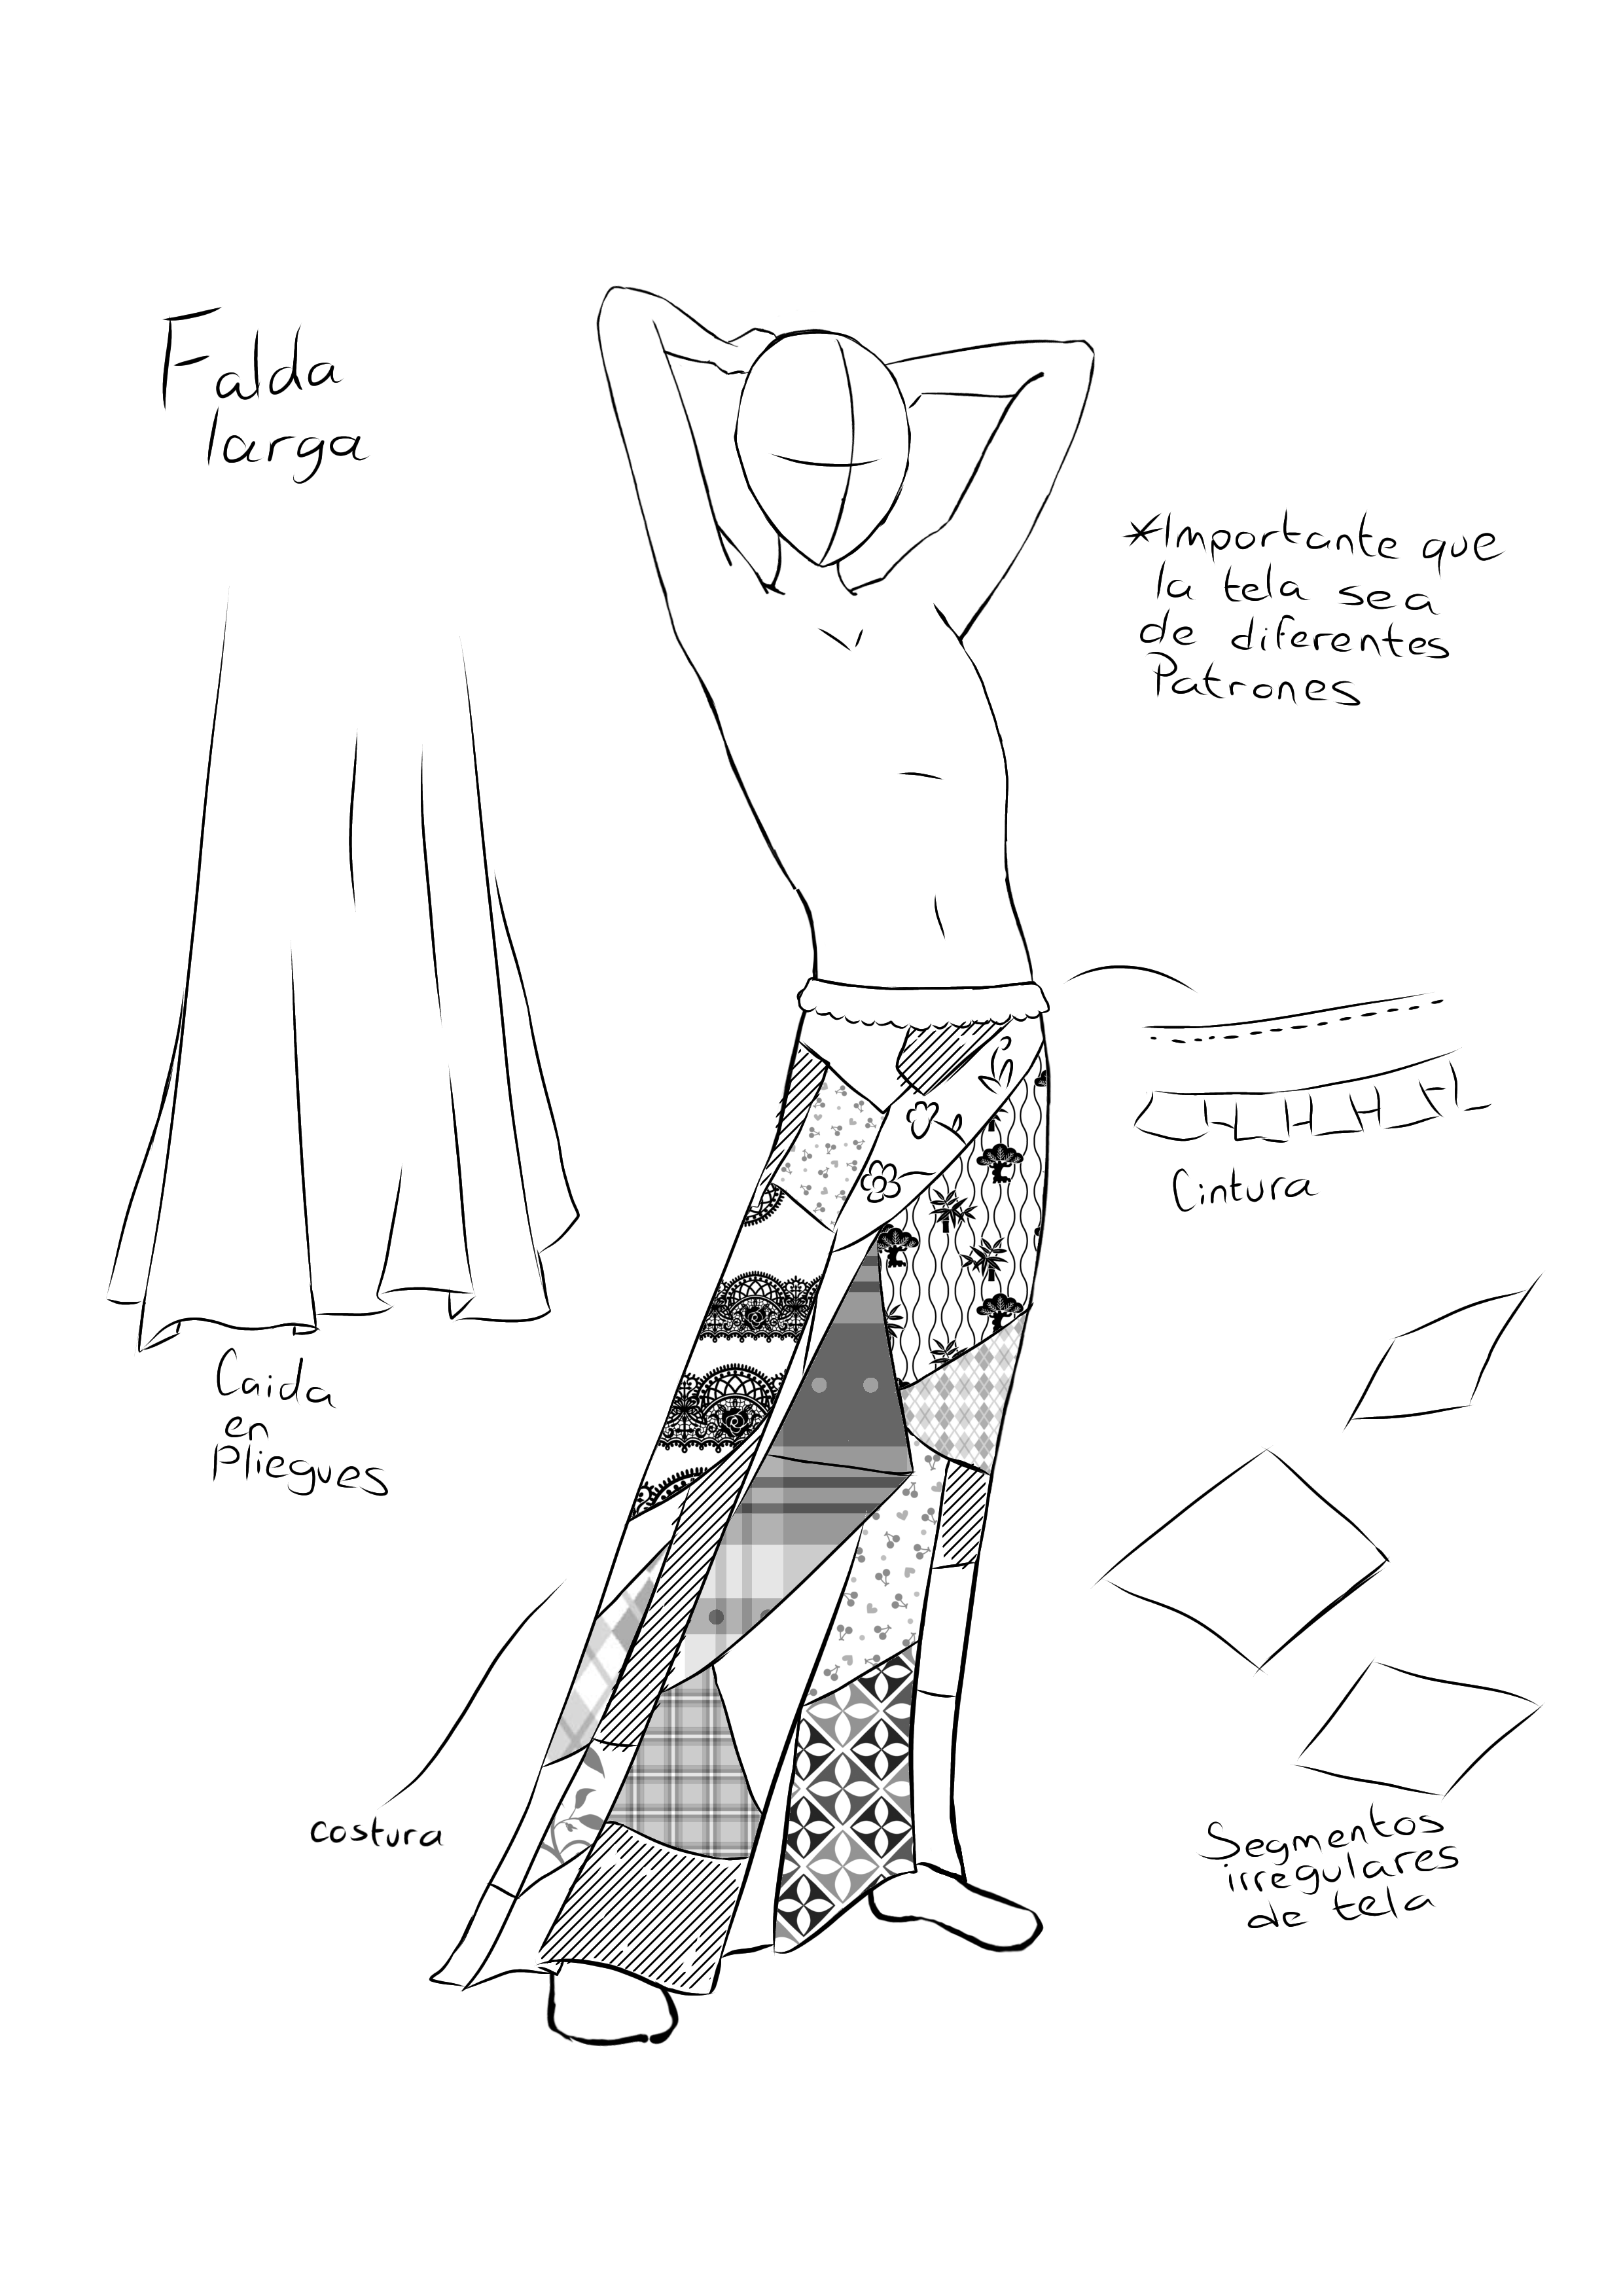 Falda
larga
*Importante que
la tela sea
de diferentes
Patrones
Cintura
Caida
en
Pliegues
costura
Segmentos
irregulares
de tela